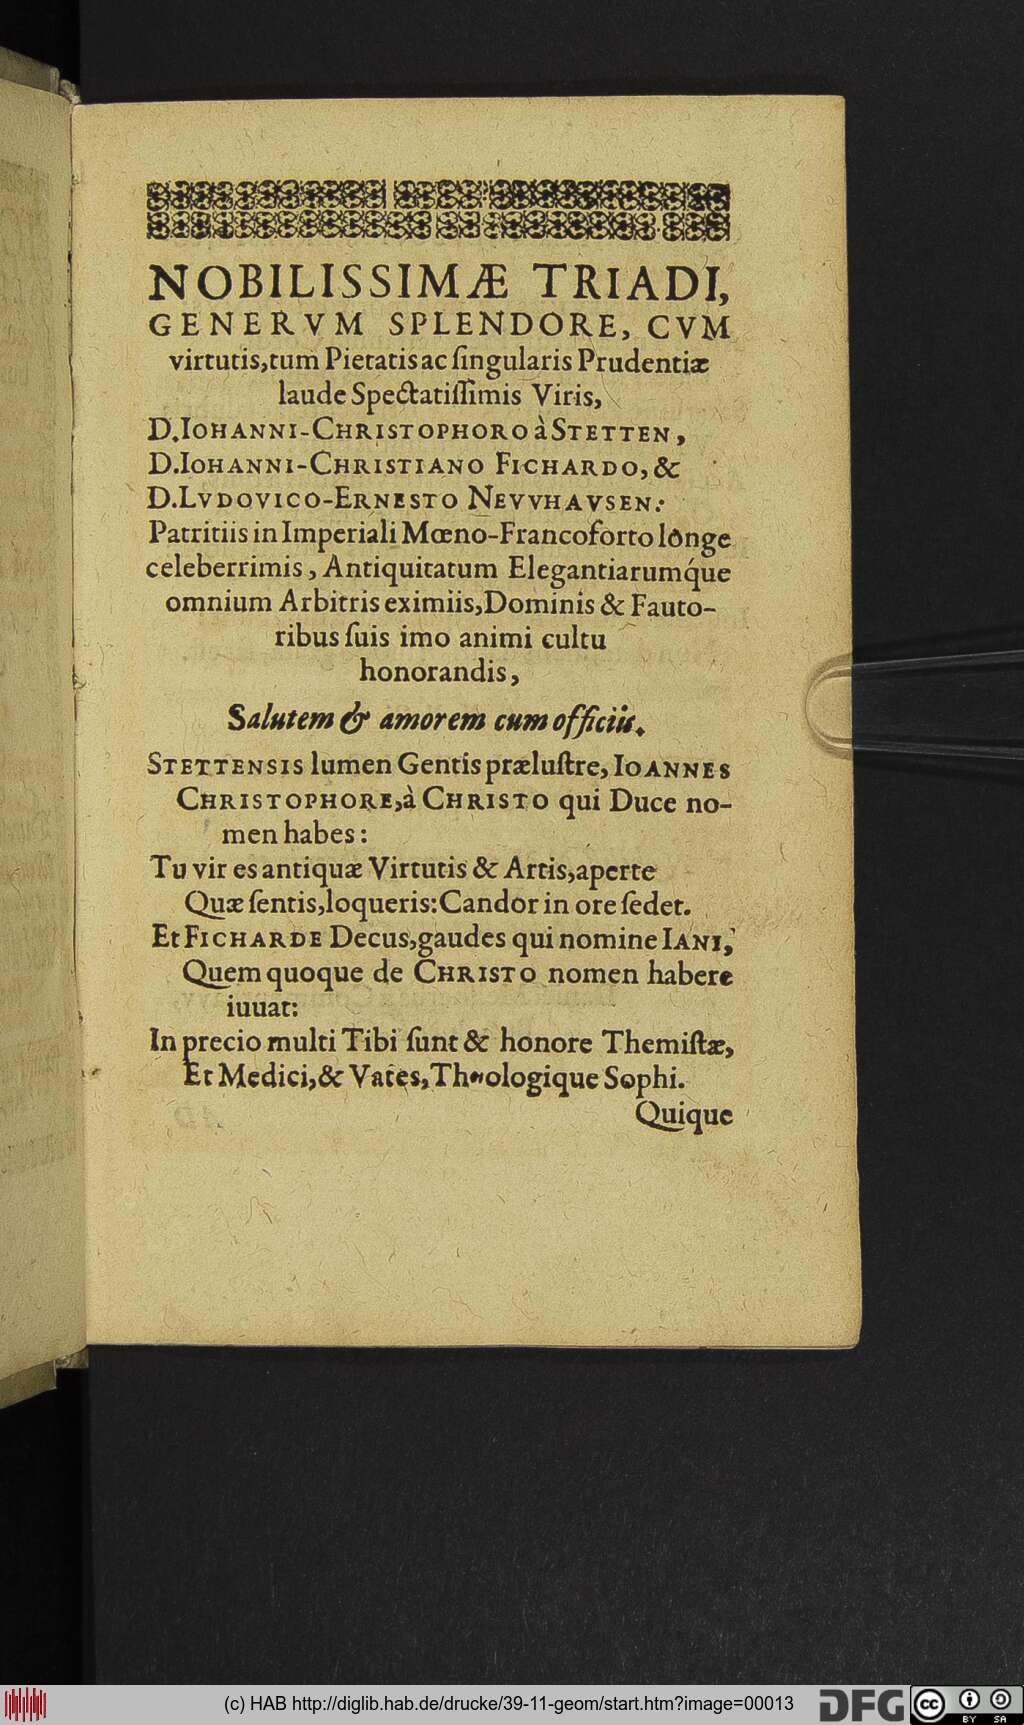 NOBILISSIMÆ TRIADI,
GENERVM SPLENDORE, CVM
virtutis, tum Pietatis ac ſingularis Prudentiæ
laude Spectatiſſimis Viris,
D. IOHANNI-CHRISTOPHORO à STETTEN,
D. IOHANNI-CHRISTIANO FICHARDO, &
D. LVDOVICO-ERNESTO NEVVHAVSEN:
Patritiis in Imperiali Mœno-Francoforto lõnge
celeberrimis, Antiquitatum Elegantiarumq́ue
omnium Arbitris eximiis, Dominis & Fauto-
ribus ſuis imo animi cultu
honorandis,
Salutem & amorem cum officiis.
STETTENSIS lumen Gentis præluſtre, IOANNES
CHRISTOPHORE, à CHRISTO qui Duce no-
men habes:
Tu vir es antiquæ Virtutis & Artis, aperte
Quæ ſentis, loqueris: Candor in ore ſedet.
Et FICHARDE Decus, gaudes qui nomine IANI,
Quem quoque de CHRISTO nomen habere
iuuat:
In precio multi Tibi ſunt & honore Themiſtæ,
Et Medici, & Vates, Theologique Sophi.
Quique
(c) HAB http://diglib.hab.de/drucke/39-11-geom/start.htm?image=00013
DFG
cc BY SA